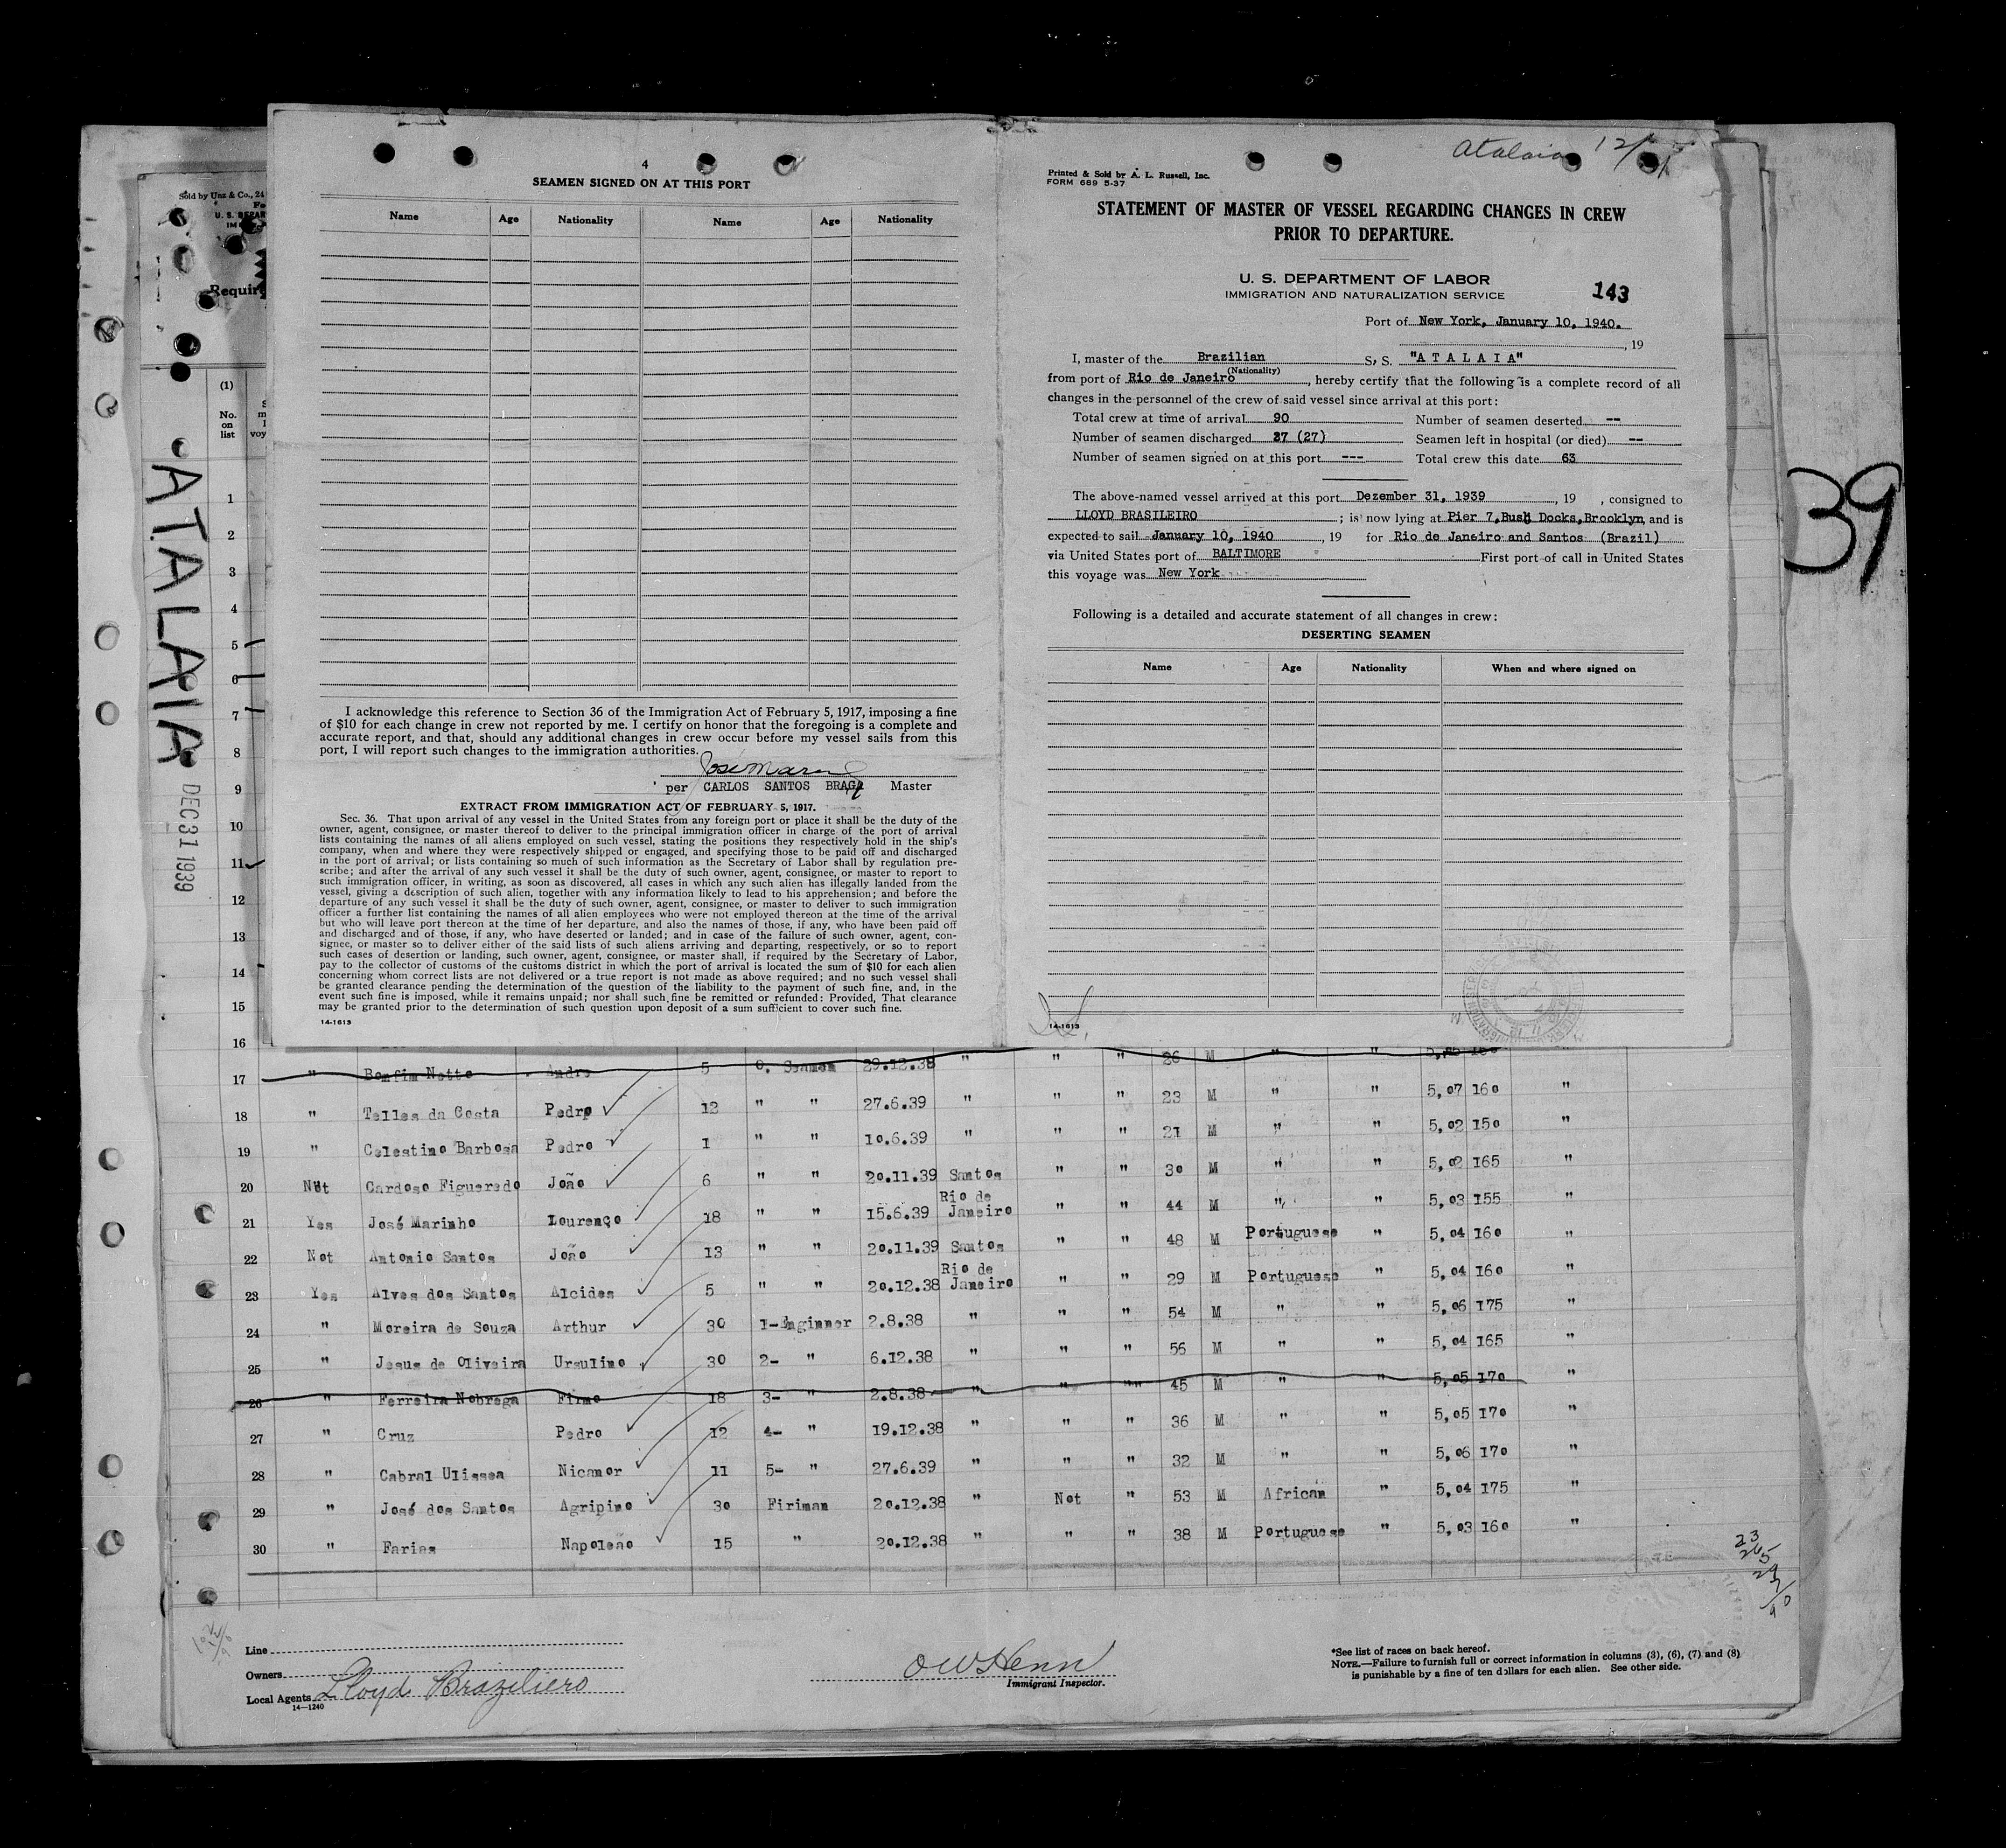 Atalaia
39
ATALAIA
DEC 31 1939
Sold by Unz & Co., 24
U. S. DEPAR
IM
Require
(1)
No.
on
list
4
SEAMEN SIGNED ON AT THIS PORT
Name Age Nationality Name Age Nationality
I acknowledge this reference to Section 36 of the Immigration Act of February 5, 1917, imposing a fine
of $10 for each change in crew not reported by me. I certify on honor that the foregoing is a complete and
accurate report, and that, should any additional changes in crew occur before my vessel sails from this
port, I will report such changes to the immigration authorities.
per CARLOS SANTOS BRAGA Master
EXTRACT FROM IMMIGRATION ACT OF FEBRUARY 5, 1917.
Sec. 36. That upon arrival of any vessel in the United States from any foreign port or place it shall be the duty of the
owner, agent, consignee, or master thereof to deliver to the principal immigration officer in charge of the port of arrival
lists containing the names of all aliens employed on such vessel, stating the positions they respectively hold in the ship's
company, when and where they were respectively shipped or engaged, and specifying those to be paid off and discharged
in the port of arrival; or lists containing so much of such information as the Secretary of Labor shall by regulation pre-
scribe; and after the arrival of any such vessel it shall be the duty of such owner, agent, consignee, or master to report to
such immigration officer, in writing, as soon as discovered, all cases in which any such alien has illegally landed from the
vessel, giving a description of such alien, together with any information likely to lead to his apprehension; and before the
departure of any such vessel it shall be the duty of such owner, agent, consignee, or master to deliver to such immigration
officer a further list containing the names of all alien employees who were not employed thereon at the time of the arrival
but who will leave port thereon at the time of her departure, and also the names of those, if any, who have been paid off
and discharged and of those, if any, who have deserted or landed; and in case of the failure of such owner, agent, con-
signee, or master so to deliver either of the said lists of such aliens arriving and departing, respectively, or so to report
such cases of desertion or landing, such owner, agent, consignee, or master shall, if required by the Secretary of Labor,
pay to the collector of customs of the customs district in which the port of arrival is located the sum of $10 for each alien
concerning whom correct lists are not delivered or a true report is not made as above required; and no such vessel shall
be granted clearance pending the determination of the question of the liability to the payment of such fine, and, in the
event such fine is imposed, while it remains unpaid; nor shall such fine be remitted or refunded: Provided, That clearance
may be granted prior to the determination of such question upon deposit of a sum sufficient to cover such fine.
14-1613
Printed & Sold by A. L. Russell, Inc.
FORM 689 5-37
STATEMENT OF MASTER OF VESSEL REGARDING CHANGES IN CREW
PRIOR TO DEPARTURE.
U. S. DEPARTMENT OF LABOR
IMMIGRATION AND NATURALIZATION SERVICE
143
Port of New York, January 10, 1940.
, 19
I, master of the Brazilian S. S. "A T A L A I A"
(Nationality)
from port of Rio de Janeiro, hereby certify that the following is a complete record of all
changes in the personnel of the crew of said vessel since arrival at this port:
Total crew at time of arrival 90 Number of seamen deserted --
Number of seamen discharged 27 (27) Seamen left in hospital (or died) --
Number of seamen signed on at this port --- Total crew this date 63
The above-named vessel arrived at this port Dezember 31, 1939, 19 , consigned to
LLOYD BRASILEIRO ; is now lying at Pier 7, Bush Docks, Brooklyn, and is
expected to sail January 10, 1940, 19 for Rio de Janeiro and Santos (Brazil)
via United States port of BALTIMORE First port of call in United States
this voyage was New York
Following is a detailed and accurate statement of all changes in crew:
DESERTING SEAMEN
Name Age Nationality When and where signed on
14-1613
1
2
3
4
5
6
7
8
9
10
11
12
13
14
15
16
17 " Bomfim Netto Andre 5 O. Seamen 29.12.38 " " " 26 M " "
18 " Telles da Costa Pedro 12 " " 27.6.39 " " " 23 M " " 5,07 160 "
19 " Celestino Barbosa Pedro 1 " " 10.6.39 " " " 21 M " " 5,02 150 "
20 Not Cardoso Figueredo João 6 " " 20.11.39 Santos " " 30 M " " 5,02 165 "
21 Yes José Marinho Lourenço 18 " " 15.6.39 Rio de Janeiro " " 44 M " " 5,03 155 "
22 Not Antonio Santos João 13 " " 20.11.39 Santos " " 48 M Portuguese " 5,04 160 "
23 Yes Alves dos Santos Alcides 5 " " 20.12.38 Rio de Janeiro " " 29 M Portuguese " 5,04 160 "
24 " Moreira de Souza Arthur 30 1-Enginner 2.8.38 " " " 54 M " " 5,06 175 "
25 " Jesus de Oliveira Ursulino 30 2- " 6.12.38 " " 56 M " " 5,04 165 "
26 " Ferreira Nobrega Firmo 18 3- " 2.8.38 " " " 45 M " " 5,05 170 "
27 " Cruz Pedro 12 4- " 19.12.38 " " " 36 M " " 5,05 170 "
28 " Cabral Ulissea Nicanor 11 5- " 27.6.39 " " " 32 M " " 5,06 170 "
29 " José dos Santos Agripino 30 Firiman 20.12.38 " Not " 53 M African " 5,04 175 "
30 " Farias Napoleão 15 " 20.12.38 " " " 38 M Portuguese " 5,03 160 "
Line
Owners
Local Agents Lloyd Braziliero
14—1240
O W Henn
Immigrant Inspector.
*See list of races on back hereof.
NOTE.—Failure to furnish full or correct information in columns (3), (6), (7) and (8)
is punishable by a fine of ten dollars for each alien. See other side.